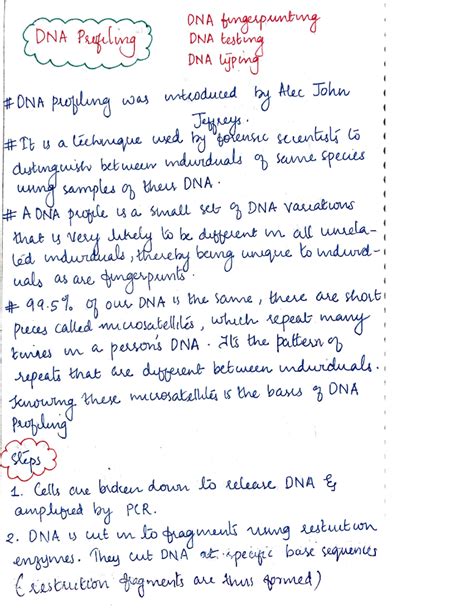 DNA Profiling
DNA fingerprinting
DNA testing
DNA typing
# DNA profiling was introduced by Alec John
Jeffreys.
# It is a technique used by forensic scientists to
distinguish between individuals of same species
using samples of their DNA.
# A DNA profile is a small set of DNA variations
that is very likely to be different in all unrela-
ted individuals, thereby being unique to individ-
uals as are fingerprints.
# 99.5% of our DNA is the same, there are short
pieces called microsatellites, which repeat many
times in a person's DNA. It's the pattern of
repeats that are different between individuals.
Knowing these microsatellites is the basis of DNA
Profiling
Steps
1. Cells are broken down to release DNA &
amplified by PCR.
2. DNA is cut in to fragments using restriction
enzymes. They cut DNA at specific base sequences
(restriction fragments are thus formed)